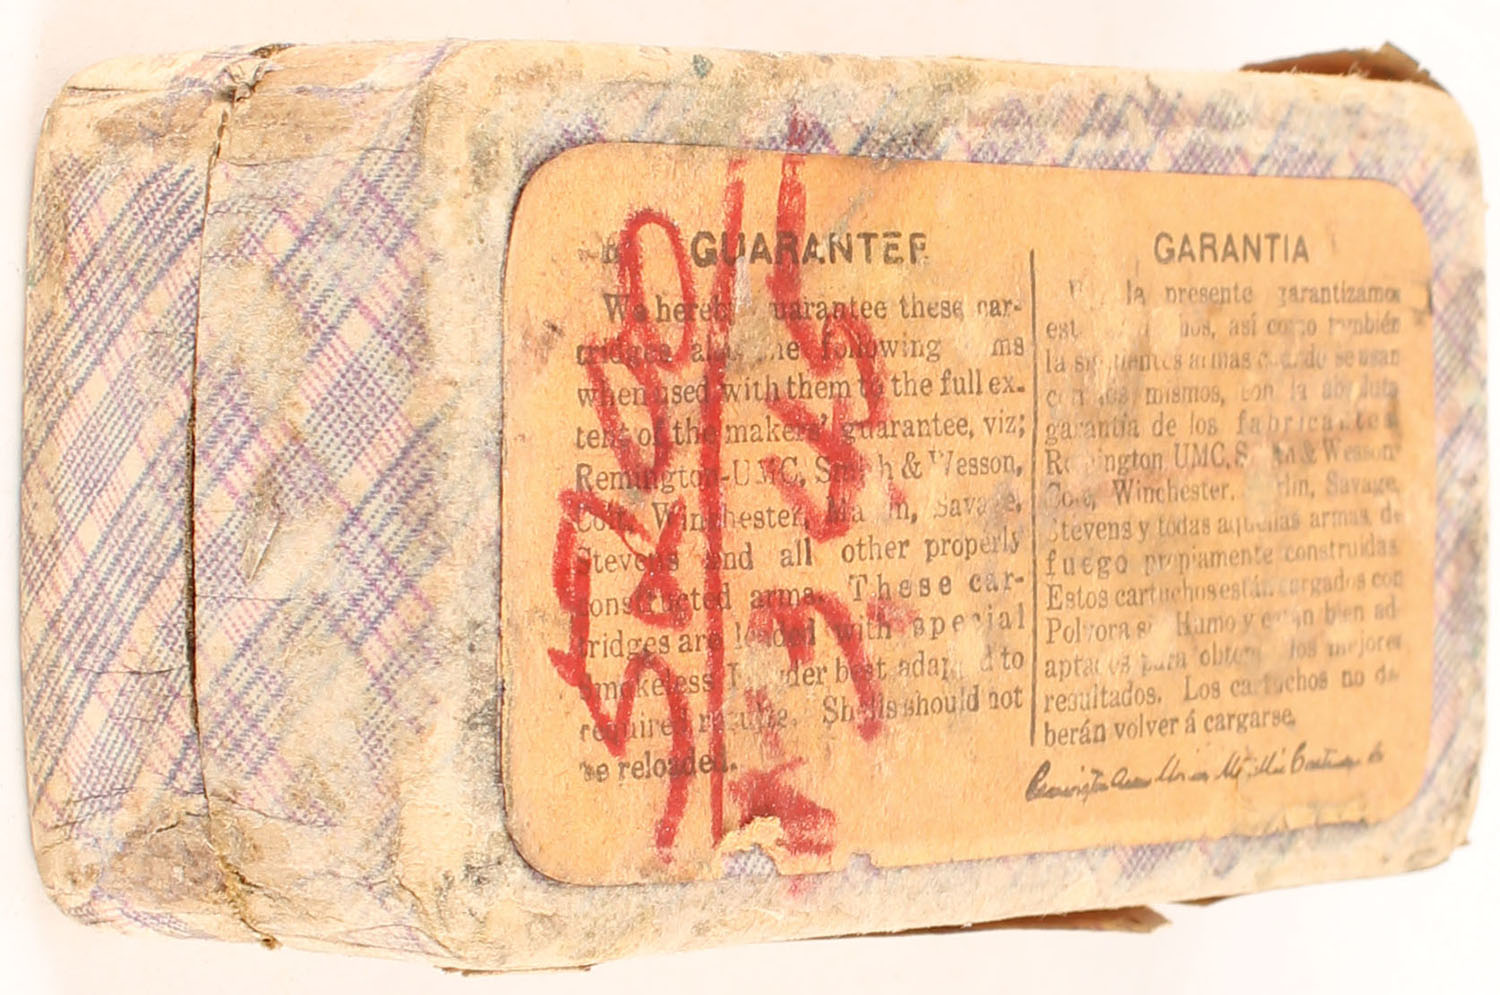 GUARANTEE
We hereby guarantee these car-
tridges also the following arms
when used with them to the full ex-
tent of the makers' guarantee, viz;
Remington-UMC, Smith & Wesson,
Colt, Winchester, Marlin, Savage,
Stevens and all other properly
constructed arms. These car-
tridges are loaded with special
smokeless Powder best adapted to
required results. Shells should not
be reloaded.
GARANTIA
la presente garantizamos
así como también
la armas cuando se usan
mismos, con la absoluta
garantía de los fabricantes
Remington UMC, Smith & Wesson
Colt, Winchester, Marlin, Savage,
Stevens y todas aquellas armas de
fuego propiamente construidas.
Estos cartuchos están cargados con
Polvora sin Humo y están bien ad-
aptados para obtener los mejores
resultados. Los cartuchos no de-
berán volver á cargarse.
Remington Arms Union Metallic Cartridge Co